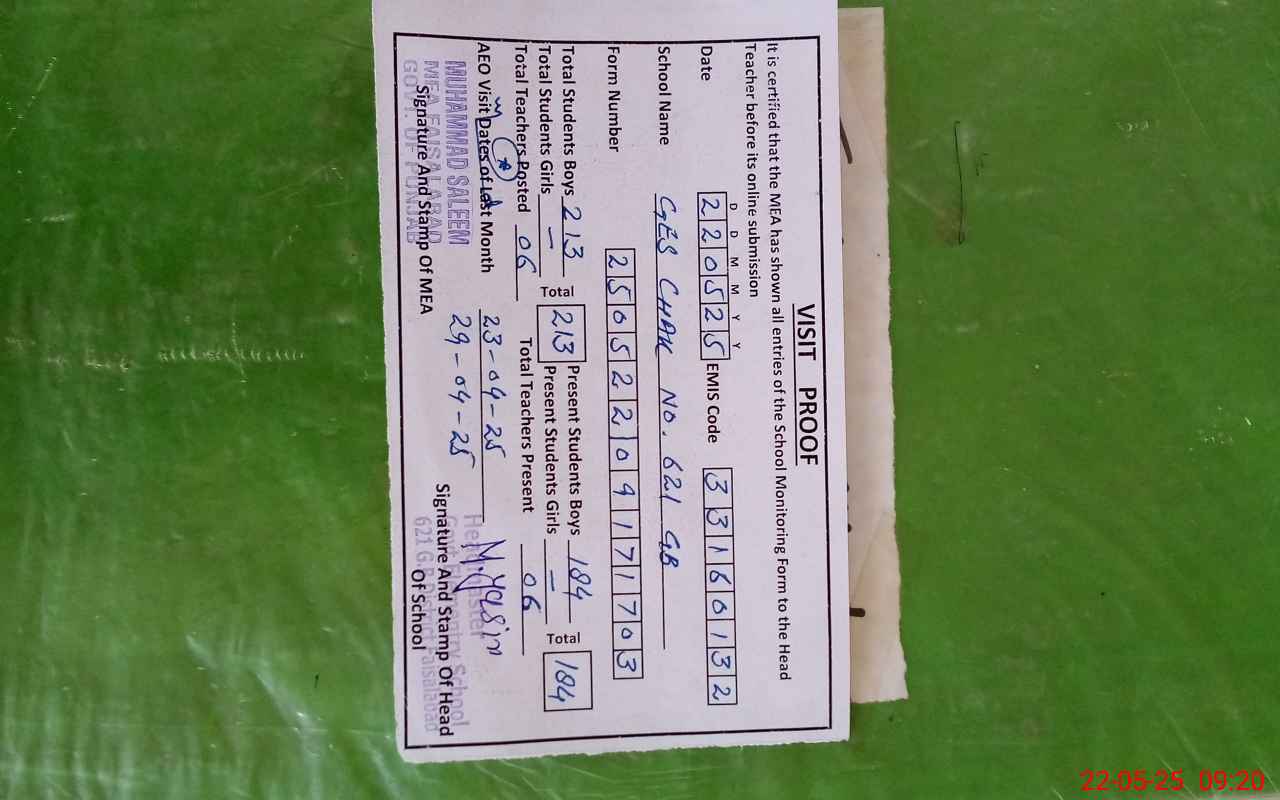 VISIT PROOF
It is certified that the MEA has shown all entries of the School Monitoring Form to the Head
Teacher before its online submission
D D M M Y Y
Date 220525 EMIS Code 33160132
School Name GES CHAK NO. 621 GB
Form Number 2505220917 1703
Total Students Boys 213 Total 213 Present Students Boys 184 Total 184
Total Students Girls — Present Students Girls —
Total Teachers Posted 06 Total Teachers Present 06
AEO Visit Dates of Last Month 23-04-25
29-04-25
M. Yasin
MUHAMMAD SALEEM
MEA FAISALABAD
GOVT. OF PUNJAB
Signature And Stamp Of MEA
Head Master
Govt Elementry School
621 G.B District Faisalabad
Signature And Stamp Of Head
Of School
22-05-25 09:20